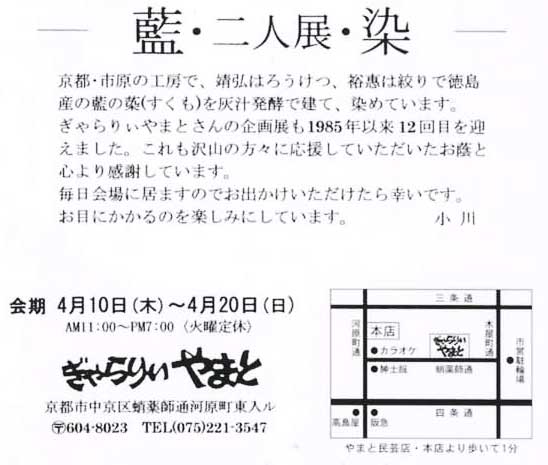 藍・二人展・染
京都・市原の工房で、靖弘はろうけつ、裕惠は絞りで徳島
産の藍の蒅(すくも)を灰汁発酵で建て、染めています。
ぎゃらりぃやまとさんの企画展も1985年以来12回目を迎
えました。これも沢山の方々に応援していただいたお蔭と
心より感謝しています。
毎日会場に居ますのでお出かけいただけたら幸いです。
お目にかかるのを楽しみにしています。 小川
会期 4月10日(木)～4月20日(日)
AM11:00～PM7:00 (火曜定休)
ぎゃらりぃ やまと
京都市中京区蛸薬師通河原町東入ル
〒604-8023 TEL(075)221-3547
三条通
河原町通
本店
ぎゃらりぃ
やまと
木屋町通
市営駐輪場
カラオケ
紳士服
蛸薬師通
四条通
高島屋
阪急
やまと民芸店・本店より歩いて1分